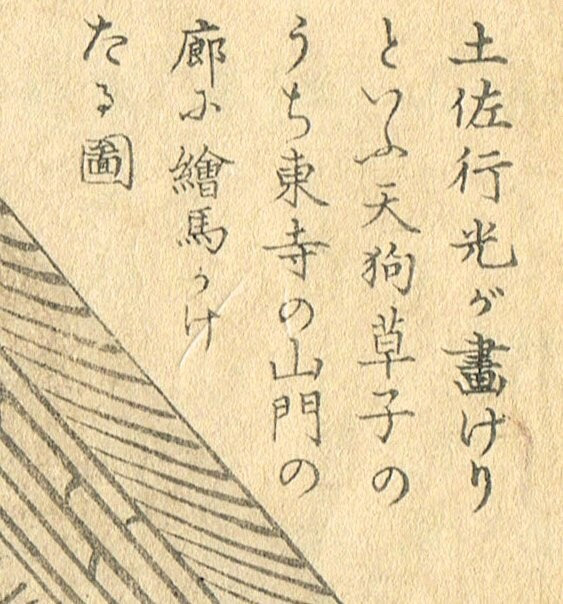 土佐行光が畫けり
といふ天狗草子の
うち東寺の山門の
廊に繪馬かけ
たる圖